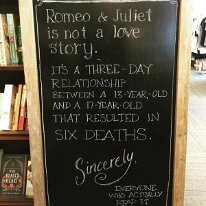 Romeo & Juliet
is not a love
story.
IT'S A THREE-DAY
RELATIONSHIP
BETWEEN A 13-YEAR-OLD
AND A 17-YEAR-OLD
THAT RESULTED IN
SIX DEATHS.
Sincerely,
EVERYONE
WHO ACTUALLY
READ IT